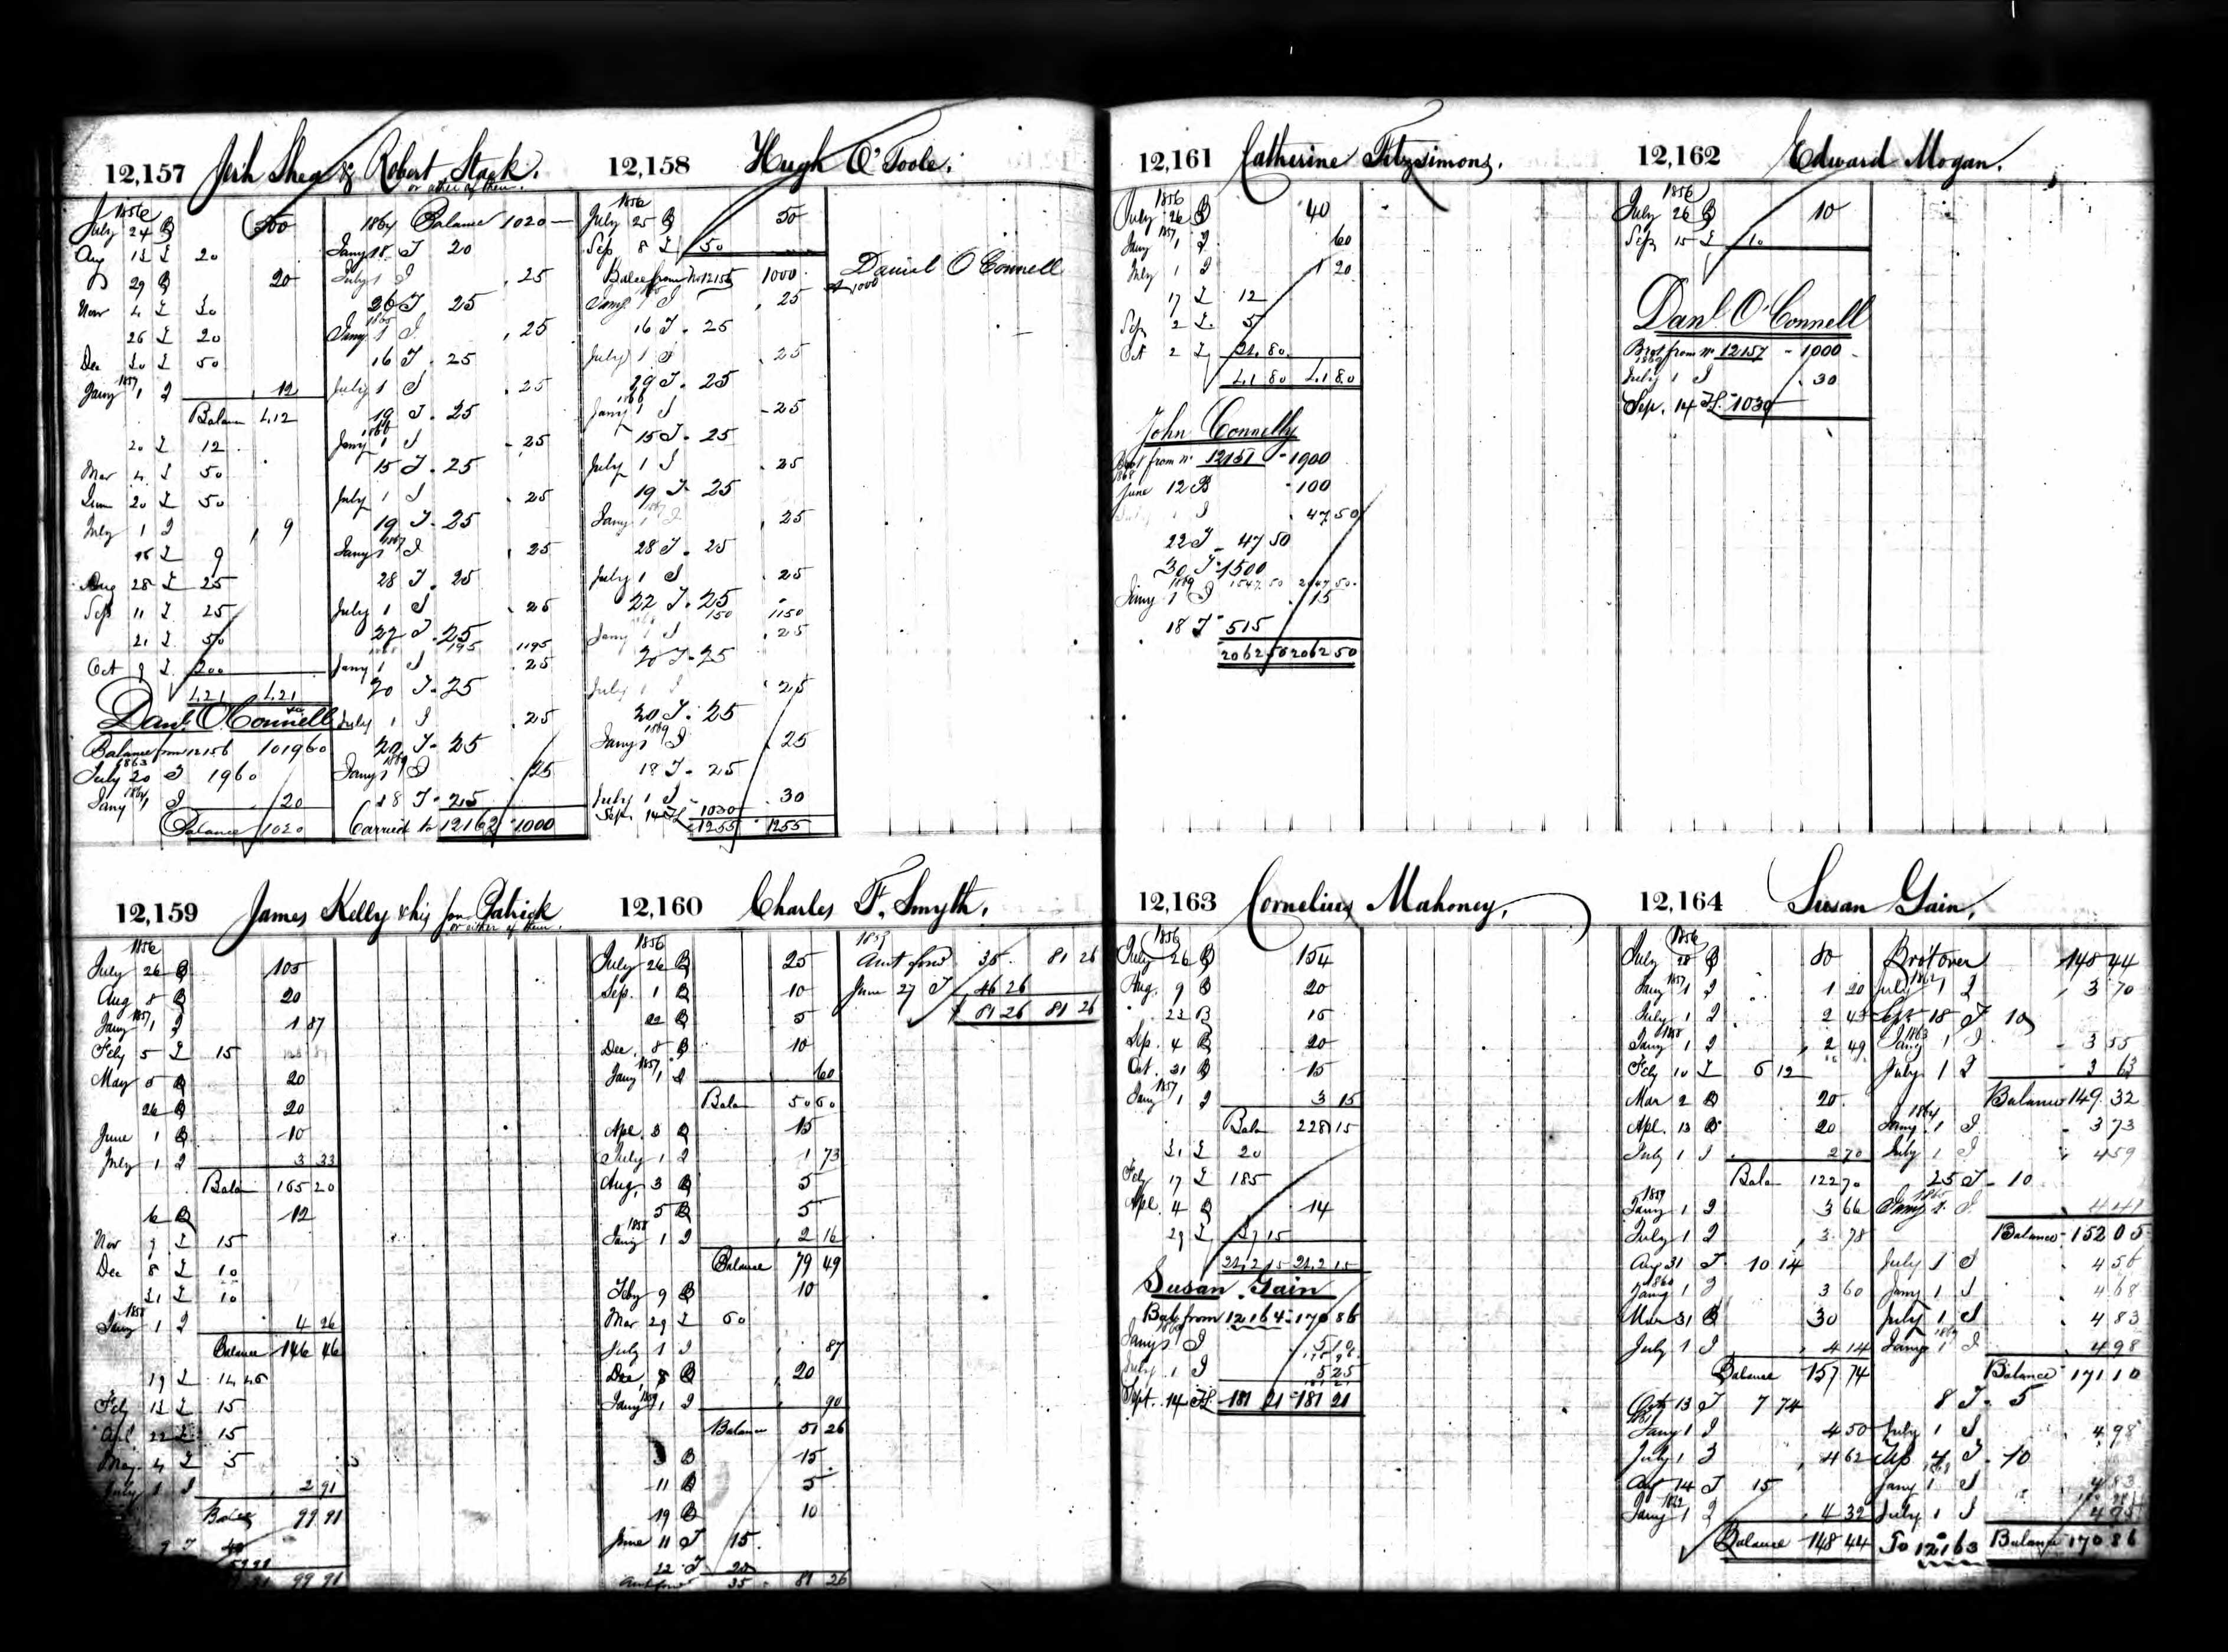 12,157 Jerh Shea & Robert Stack.
or either of them.
1856
July 24 B 300
Aug 13 L 20
29 B 20
Nov 4 L 30
26 L 20
Dec 30 L 50
1857
Jany 1 I 12
Balan 212
20 L 12
Mar 4 L 50
June 20 L 50
July 1 I 9
25 L 9
Aug 28 L 25
Sep 11 L 25
21 L 50
Oct 9 L 200
421 421
Danl. O'Connell
Balance from 12156 1019 60
1863
July 20 I 19 60
1864
Jany 1 I 20
Balance 1020
1864 Balance 1020 —
Jany 18 T 20
July 1 I 25
26 T 25
1865
Jany 1 I 25
16 T 25
July 1 I 25
19 T 25
1866
Jany 1 I 25
15 T 25
July 1 I 25
19 T 25
1867
Jany 1 I 25
28 T 25
July 1 I 25
22 T 25
195 1195
Jany 1 I 25
20 T 25
July 1 I 25
20 T 25
1869
Jany 1 I 25
18 T 25
Carried to 12162 1000
12,158 Hugh O'Toole.
1856
July 25 B 50
Sep 8 L 50
Balce from No 12155 1000
Daniel O Connell
1000
Jany 1 I 25
16 T 25
July 1 I 25
29 T 25
1866
Jany 1 I 25
15 T 25
July 1 I 25
19 T 25
1867
Jany 1 I 25
28 T 25
July 1 I 25
22 T 25
150 1150
Jany 1 I 25
20 T 25
July 1 I 25
20 T 25
1869
Jany 1 I 25
18 T 25
July 1 I 30
Sep. 14 1030
1255 1255
12,159 James Kelly & his son Patrick
or either of them.
1856
July 26 B 105
Aug 8 B 20
1857
Jany 1 I 1 87
Feby 5 L 15
May 5 B 20
26 B 20
June 1 B 10
July 1 I 3 33
Balan 165 20
6 B 12
Nov 9 L 15
Dec 8 L 10
31 L 10
1858
Jany 1 I 4 26
Balance 146 46
19 L 14 46
Feby 13 L 15
Apl. 22 L 15
May 4 L 5
July 1 I 2 91
Balce 99 91
99 91
12,160 Charles F. Smyth.
1856
July 26 B 25
Sep. 1 B 10
22 B 5
Dec. 8 B 10
1857
Jany 1 I 60
Bala 50 60
Apl. 8 B 15
July 1 I 1 73
Aug. 3 B 5
5 B 5
1858
Jany 1 I 2 16
Balance 79 49
Feby 9 B 10
Mar 29 L 60
July 1 I 87
Dec 8 B 20
1859
Jany 1 I 90
Balance 51 26
3 B 15
11 B 5
19 B 10
June 11 T 15
22 T 20
Amt forwd 35 81 26
1859
Amt forwd 35 81 26
June 27 T 46 26
81 26 81 26
12,161 Catherine Fitzsimons.
1856
July 26 B 40
1857
Jany 1 I 60
July 1 I 1 20
17 L 12
Sep 2 L 5
Oct 2 L 24.80
41 80 41 80
John Connelly
Brot from No 12151 1900
1868
June 12 B 100
July 1 I 47 50
22 T 47 50
30 T 1500
1547 50 2047 50
1869
Jany 1 I 15
18 T 515
2062 50 2062 50
12,162 Edward Mogan.
1856
July 26 B 10
Sep 15 L 10
Danl. O'Connell
Brot from No 12157 1,000
1869
July 1 I 30
Sep. 14 1030
12,163 Cornelius Mahoney.
1856
July 26 B 154
Aug. 9 B 20
23 B 16
Sep. 4 B 20
Oct. 21 B 15
1857
Jany 1 I 3 15
Bala 228 15
31 L 20
Feby 17 L 185
Apl. 4 B 14
29 L 37 15
242 15 242 15
Susan Gain
Bal from 12164 170 86
1869
Jany 1 I 5 10
July 1 I 5 25
Sept. 14 181 21 181 21
12,164 Susan Gain.
1856
July 28 B 80
1857
Jany 1 I 1 20
July 1 I 2 43
1858
Jany 1 I 2 49
Feby 10 L 6 12
Mar 2 B 20
Apl. 13 B 20
July 1 I 2 70
Bala 122 70
1859
Jany 1 I 3 66
July 1 I 3 78
Aug 31 T 10 14
1860
Jany 1 I 3 60
Mar 31 B 30
July 1 I 4 14
Balance 157 74
Oct 13 T 7 74
1861
Jany 1 I 4 50
July 1 I 4 62
Aug 14 T 15
1862
Jany 1 I 4 32
Balance 148 44
Brot over 148 44
1862
July 1 I 3 70
Sep 18 T 10
1863
Jany 1 I 3 55
July 1 I 3 63
Balance 149 32
1864
Jany 1 I 3 73
July 1 I 4 59
25 T 10
1865
Jany 1 I 4 41
Balance 152 05
July 1 I 4 56
Jany 1 I 4 68
July 1 I 4 83
1867
Jany 1 I 4 98
Balance 171 10
8 T 5
July 1 I 4 98
Sep 4 T 10
1868
Jany 1 I 4 83
July 1 I 4 95
To 12163 Balance 170 86